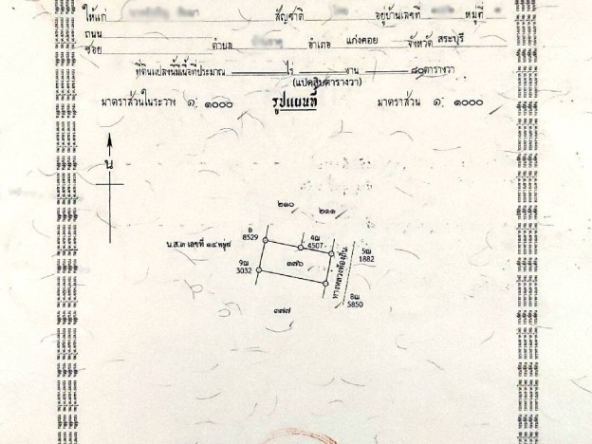 ให้แก่ สัญชาติ อยู่บ้านเลขที่ หมู่ที่
ถนน
ซอย ตำบล อำเภอ แก่งคอย จังหวัด สระบุรี
ที่ดินแปลงนี้มีเนื้อที่ประมาณ ไร่ งาน ๘๐ ตารางวา
(แปดสิบตารางวา)
มาตราส่วนในระวาง ๑: ๑๐๐๐ รูปแผนที่ มาตราส่วน ๑: ๑๐๐๐
น
๒๑๐ ๒๑๑
น.ส.๓ เลขที่
8529
4ฌ
4507
5ฌ
1882
๓๗๖
9ฌ
3032
ทางหลวงท้องถิ่น
8ฌ
5850
๓๗๗